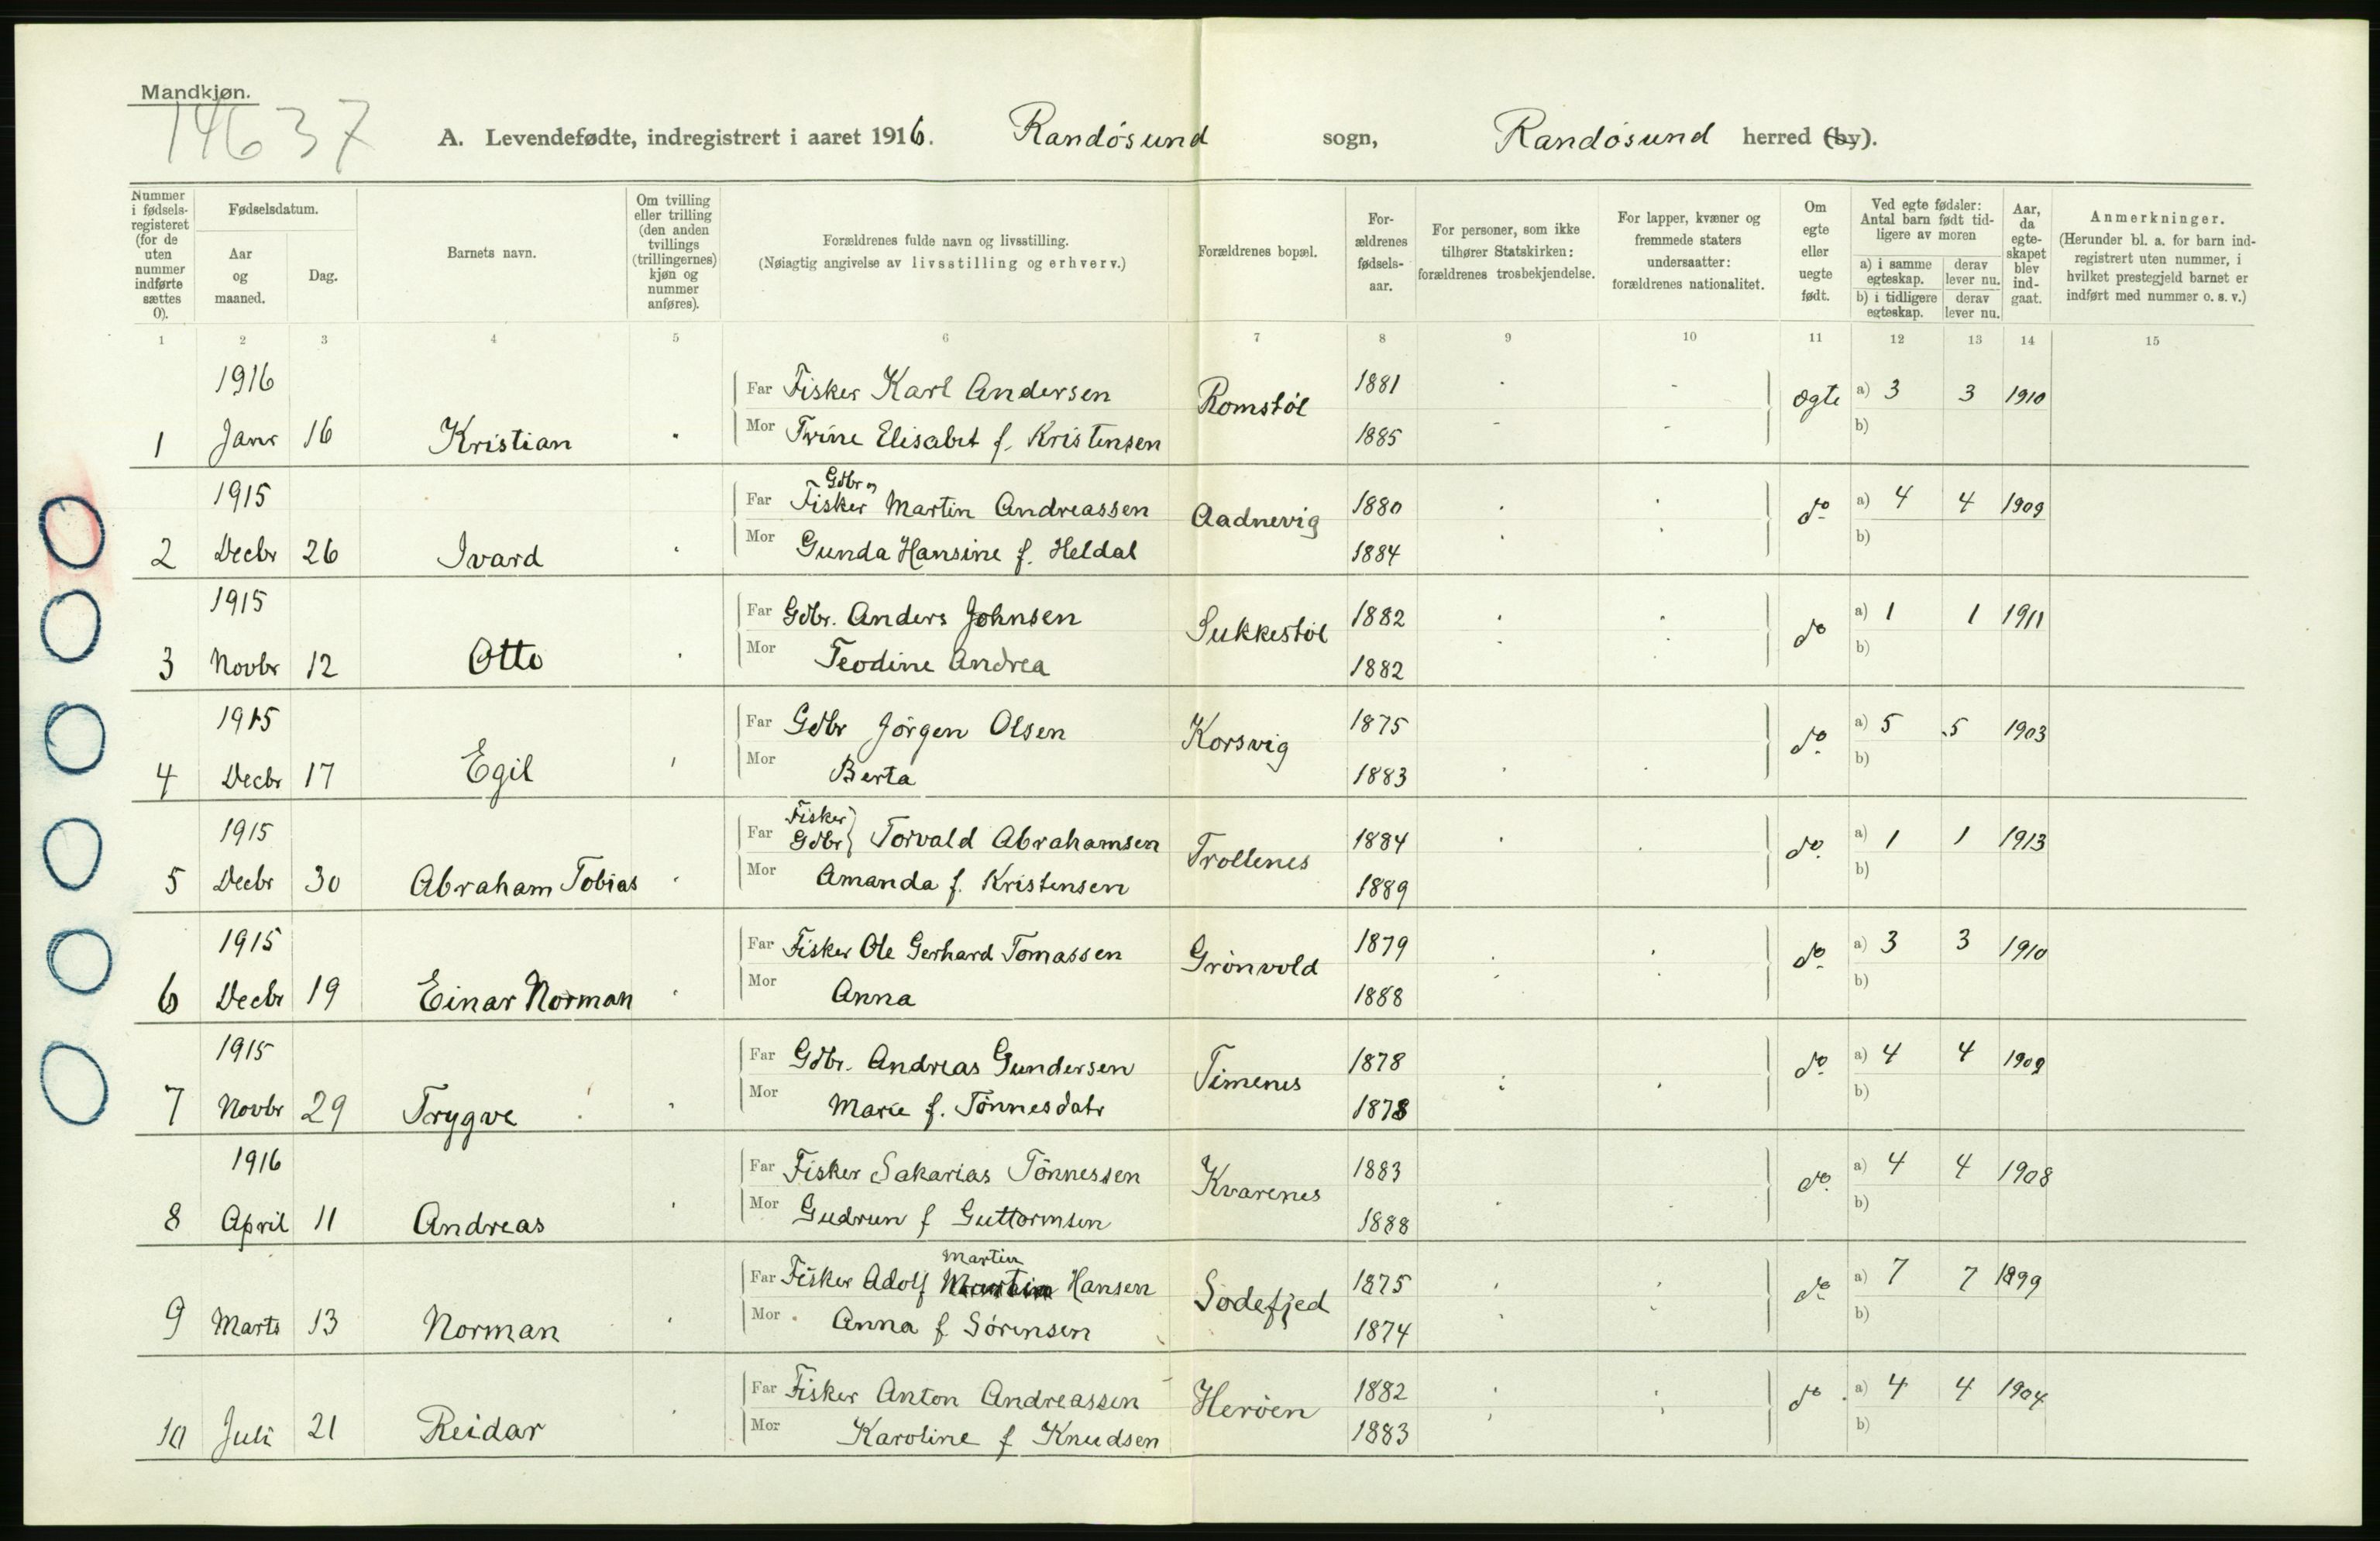 Mandkjøn.
14637
A. Levendefødte, indregistrert i aaret 1916. Randösund sogn, Randösund herred (by).
Nummer i fødsels-registeret (for de uten nummer indførte sættes 0).
Fødselsdatum.
Aar og maaned.
Dag.
Barnets navn.
Om tvilling eller trilling (den anden tvillings (trillingernes) kjøn og nummer anføres).
Forældrenes fulde navn og livsstilling.
(Nøiagtig angivelse av livsstilling og erhverv.)
Forældrenes bopæl.
For-ældrenes fødsels-aar.
For personer, som ikke tilhører Statskirken: forældrenes trosbekjendelse.
For lapper, kvæner og fremmede staters undersaatter: forældrenes nationalitet.
Om egte eller uegte født.
Ved egte fødsler: Antal barn født tid-ligere av moren
a) i samme egteskap. derav lever nu.
b) i tidligere egteskap. derav lever nu.
Aar, da egte-skapet blev ind-gaat.
Anmerkninger.
(Herunder bl. a. for barn ind-registrert uten nummer, i hvilket prestegjeld barnet er indført med nummer o. s. v.)
1 2 3 4 5 6 7 8 9 10 11 12 13 14 15
1916 Far Fisker Karl Andersen Romstøl 1881 ægte a) 3 3 1910
1 Janr 16 Kristian Mor Trine Elisabet f. Kristensen 1885 b)
Gdbr og
1915 Far Fisker Martin Andreassen Aadnevig 1880 do a) 4 4 1909
2 Decbr 26 Ivard Mor Gunda Hansine f. Heldal 1884 b)
1915 Far Gdbr. Anders Johnsen Sukkestöl 1882 do a) 1 1 1911
3 Novbr 12 Otto Mor Teodine Andrea 1882 b)
1915 Far Gdbr Jörgen Olsen Korsvig 1875 do a) 5 5 1903
4 Decbr 17 Egil Mor Berta 1883 b)
Fisker
1915 Far Gdbr Torvald Abrahamsen Trollenes 1884 do a) 1 1 1913
5 Decbr 30 Abraham Tobias Mor Amanda f. Kristensen 1889 b)
1915 Far Fisker Ole Gerhard Tomassen Grönvold 1879 do a) 3 3 1910
6 Decbr 19 Einar Norman Mor Anna 1888 b)
1915 Far Gdbr. Andreas Gundersen Timenes 1878 do a) 4 4 1909
7 Novbr 29 Trygve Mor Marie f. Tönnesdatr 1878 b)
1916 Far Fisker Sakarias Tönnessen Kvarenes 1883 do a) 4 4 1908
8 April 11 Andreas Mor Gudrun f Guttormsen 1888 b)
Martin
Far Fisker Adolf Martin Hansen Sodefjed 1875 do a) 7 7 1899
9 Marts 13 Norman Mor Anna f Sörensen 1874 b)
Far Fisker Anton Andreassen Heröen 1882 do a) 4 4 1904
10 Juli 21 Reidar Mor Karoline f Knudsen 1883 b)